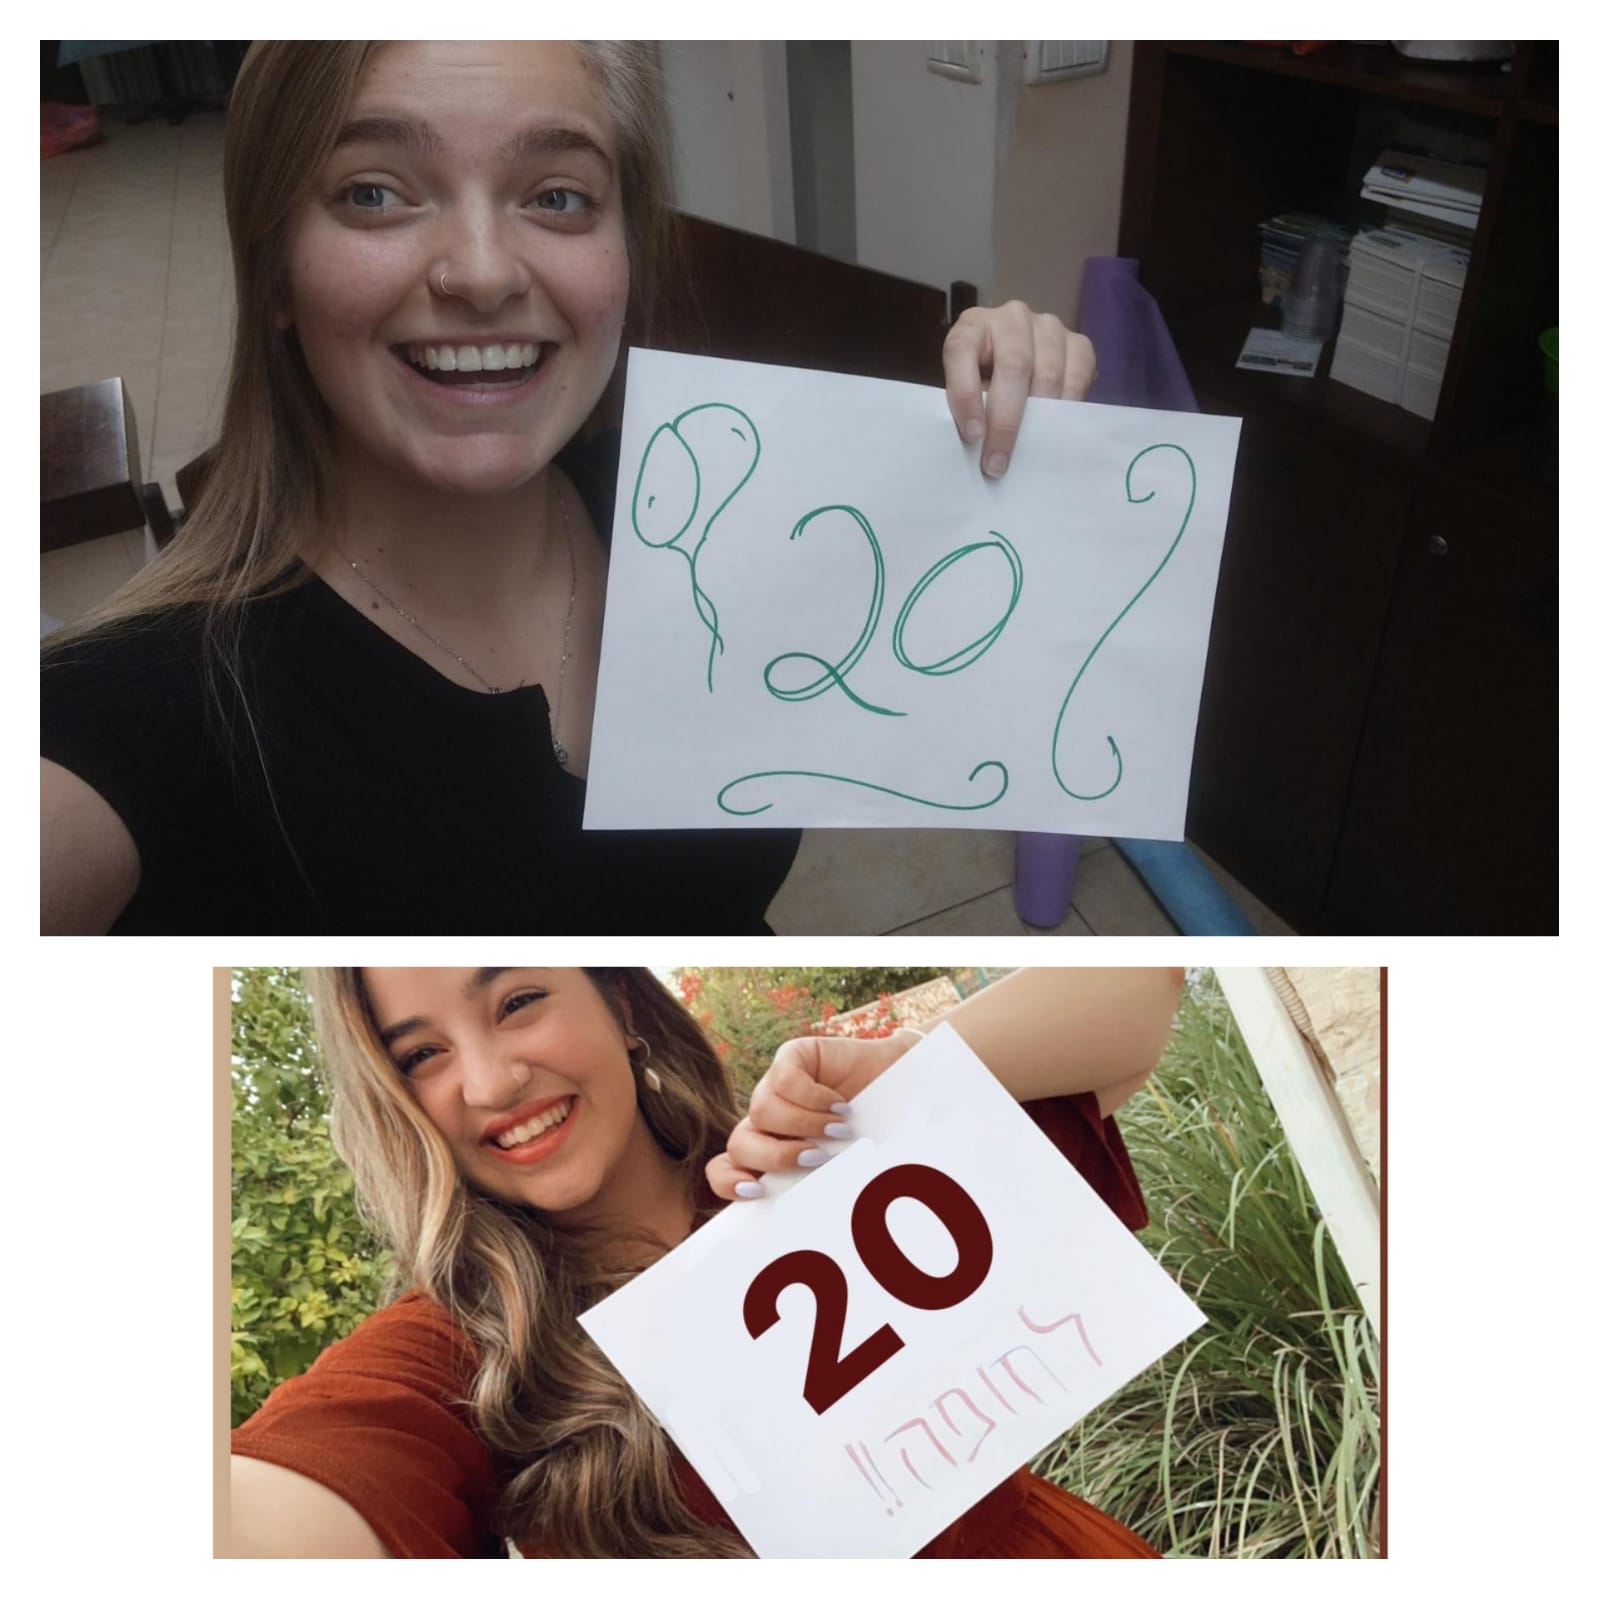 20
20
לחופה!!